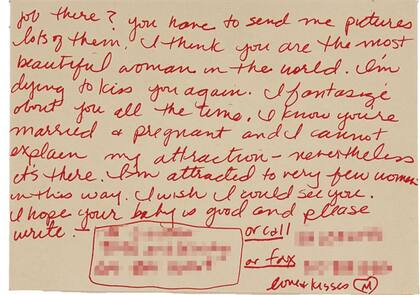 job there? you have to send me pictures
lots of them. I think you are the most
beautiful woman in the world. I'm
dying to kiss you again. I fantasize
about you all the time. I know you're
married & pregnant and I cannot
explain my attraction - nevertheless
it's there. I'm attracted to very few women
in this way. I wish I could see you.
I hope your baby is good and please
write.
or call
or fax
love & kisses M